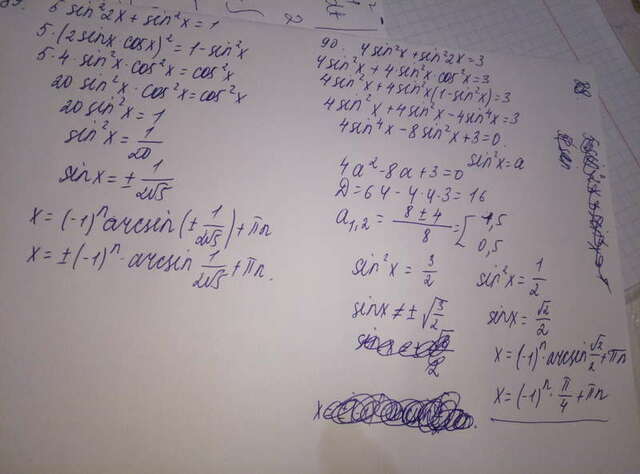 5 sin²2x + sin²x = 1
5·(2sinx·cosx)² = 1-sin²x
5·4·sin²x·cos²x = cos²x
20 sin²x·cos²x = cos²x
20 sin²x = 1
sin²x = 1/20
sinx = ± 1/2√5
x = (-1)ⁿ arcsin(± 1/2√5) + πn
x = ±(-1)ⁿ· arcsin 1/2√5 + πn.
90. 4sin²x + sin²2x = 3
4sin²x + 4sin²x·cos²x = 3
4sin²x + 4sin²x(1-sin²x) = 3
4sin²x + 4sin²x - 4sin⁴x = 3
4sin⁴x - 8sin²x + 3 = 0
sin²x = a
4a² - 8a + 3 = 0
D = 64 - 4·4·3 = 16
a₁,₂ = 8 ± 4 / 8 = [ 1,5
0,5
sin²x = 3/2
sinx ≠ ± √3/2
sin²x = 1/2
sinx = √2/2
x = (-1)ⁿ· arcsin √2/2 + πn
x = (-1)ⁿ· π/4 + πn